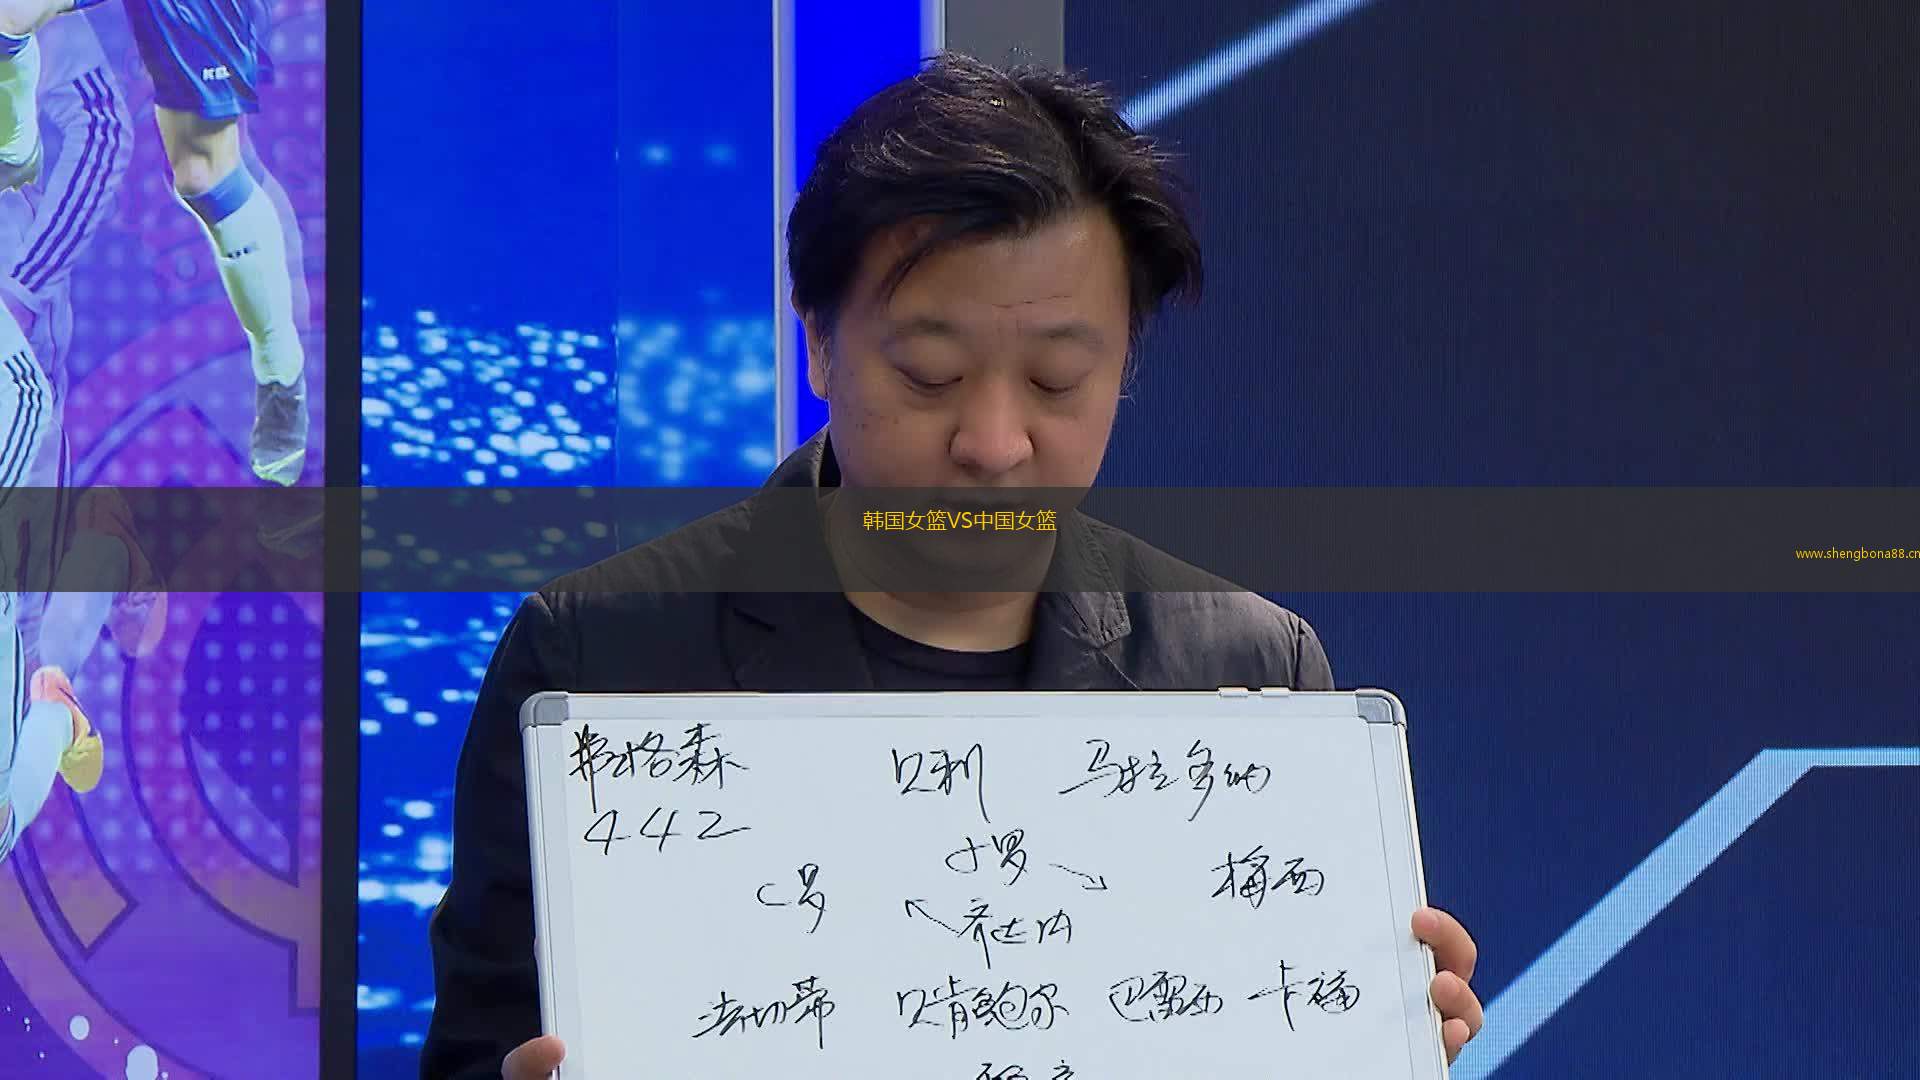 韩国女篮VS中国女篮
www.shengbona88.cn
弗格森 贝利 马拉多纳
442
小罗
C罗 梅西
齐达内
法切蒂 贝肯鲍尔 巴雷西 卡福